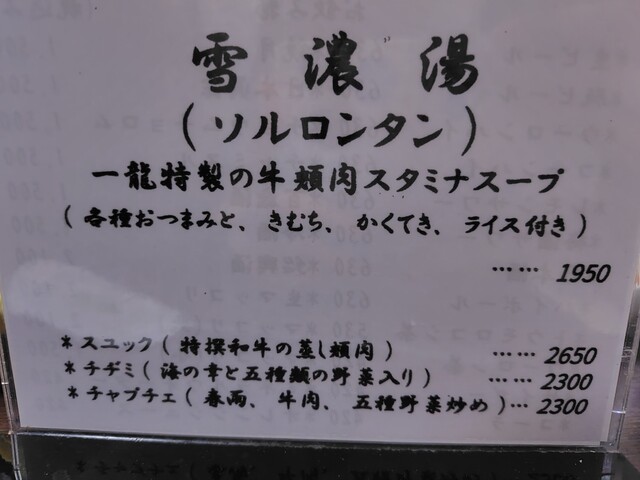 雪濃湯
(ソルロンタン)
一龍特製の牛頬肉スタミナスープ
(各種おつまみと、きむち、かくてき、ライス付き)
…… 1950
*スユック(特撰和牛の蒸し頬肉) …… 2650
*チヂミ(海の幸と五種類の野菜入り) …… 2300
*チャプチェ(春雨、牛肉、五種野菜炒め)… 2300